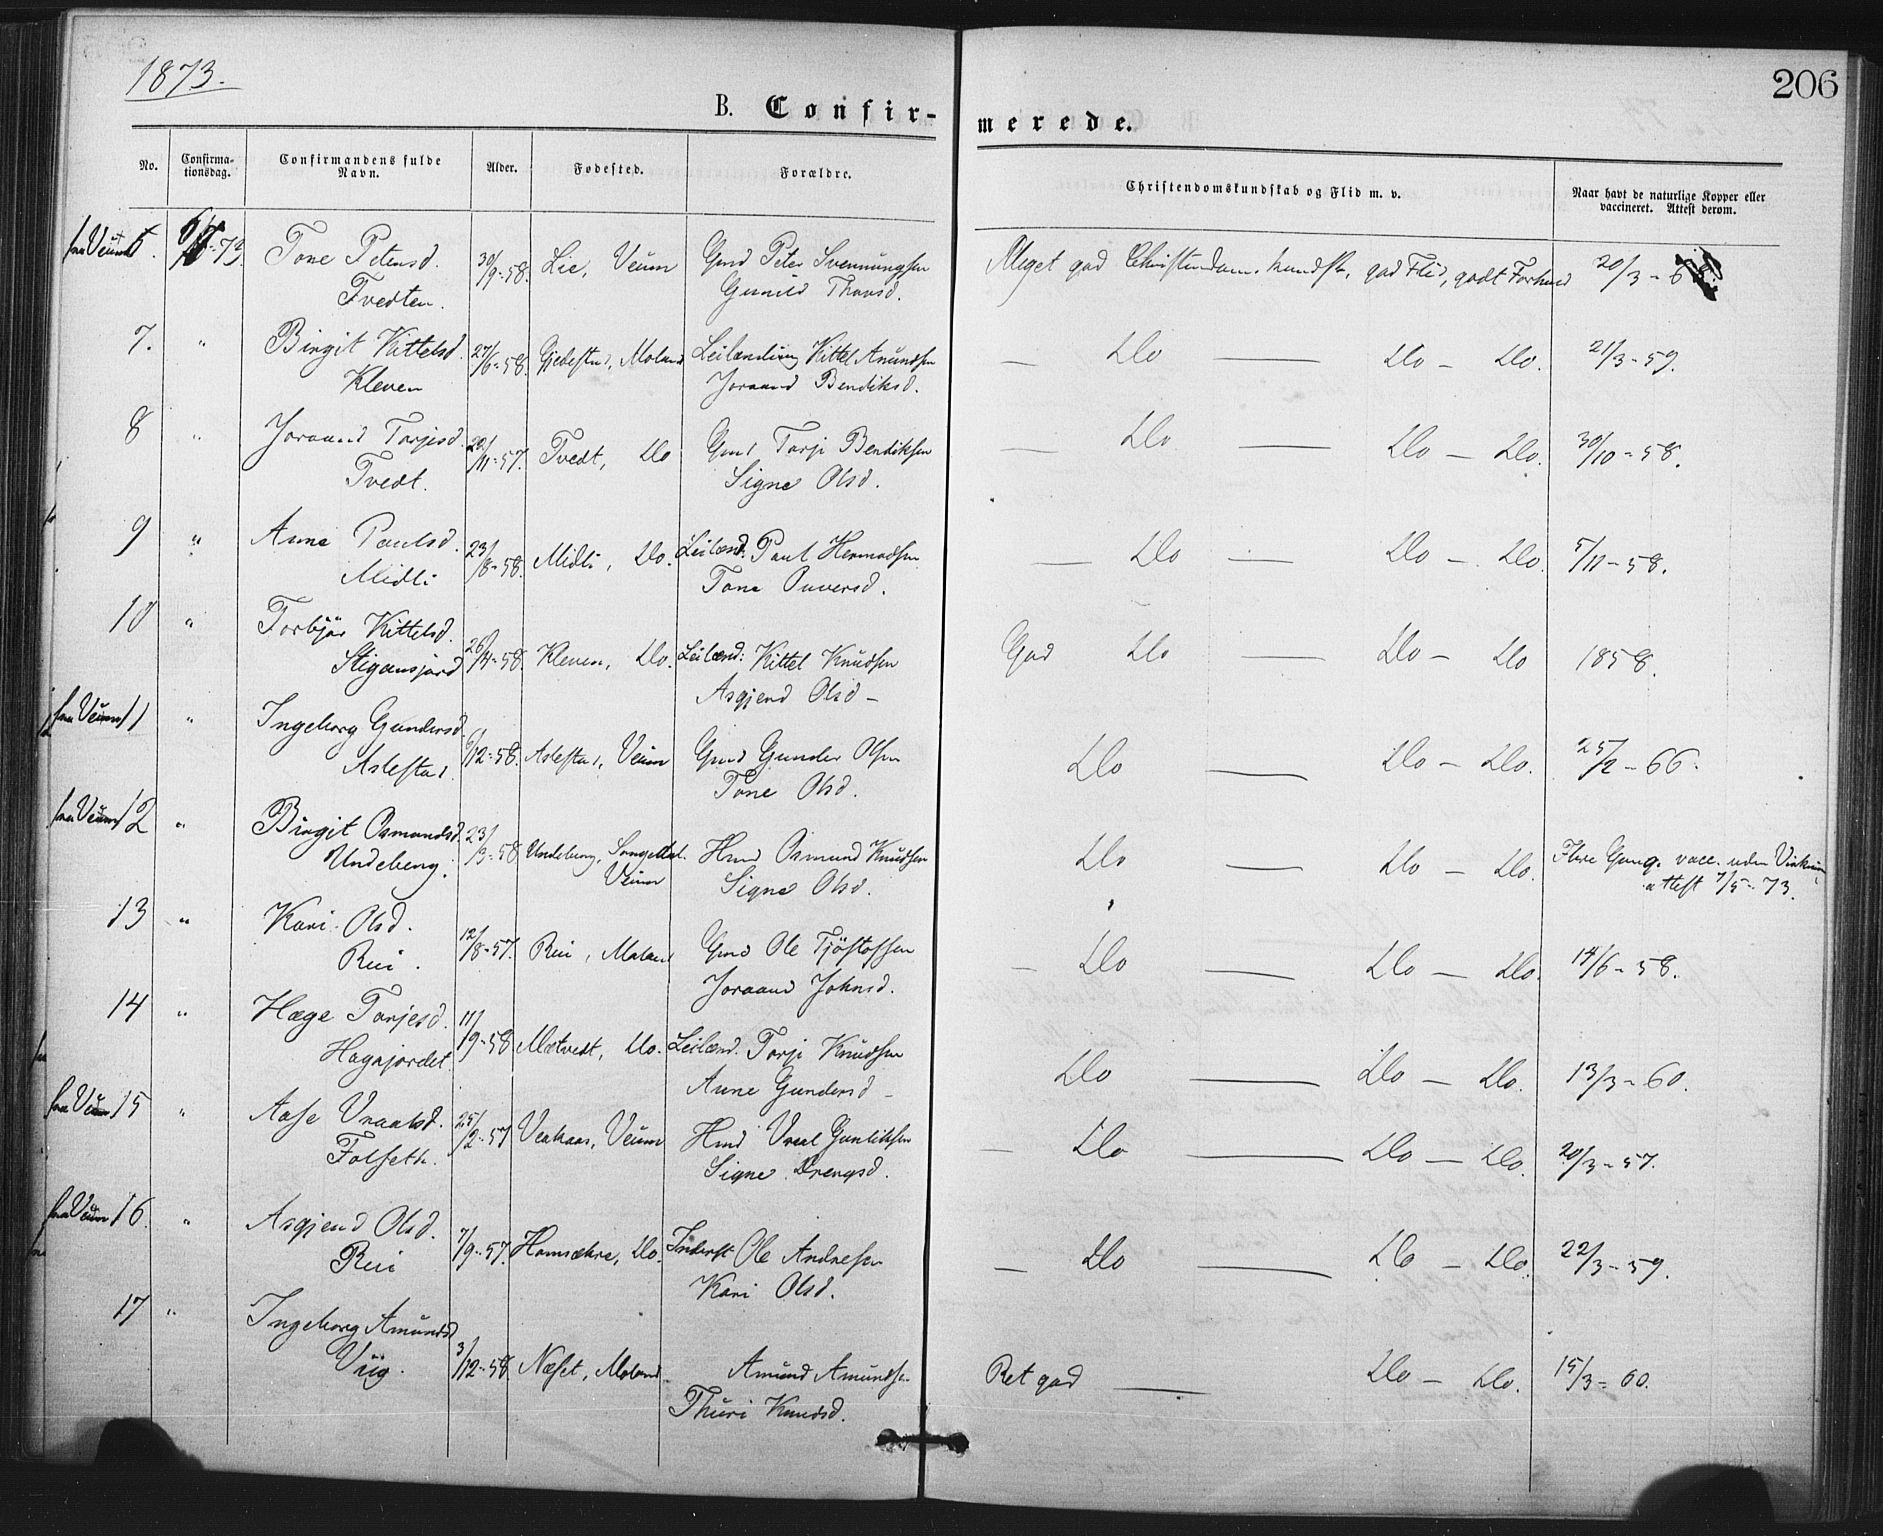 1873.
206
B. Confir-
merede.
No.
Confirma-
tionsdag.
Confirmandens fulde
Navn.
Alder.
Fødested.
Forældre.
Christendomskundskab og Flid m. v.
Naar havt de naturlige Kopper eller
vaccineret. Attest derom.
fra Veum 6. Tone Petersd. 30/9-58. Lie, Veum Gmd Peter Svennungsen Meget god Christendomskundsk., god Flid, godt Forhold 20/3-
Tvedten. Gunild Thovsd.
7. " Birgit Kittelsd. 27/6-58. Gjelestad, Moland Leilænding Kittel Amundsen — Do — Do — Do. 21/3-59.
Kleven Joraand Bendiksd.
8 " Joraand Torjesd. /11-57. Tvedt, Do Gmd Torje Bendiksen — Do — Do — Do. 30/10-58.
Tvedt. Signe Olsd.
9 " Anne Paulsd. 23/8-58. Midli, Do. Leilænd. Paul Hermodsen — Do — Do — Do. 5/11-58.
Midli Tone Ouversd.
10 " Torbjør Kittelsd. 26/4-58. Kleven, Do. Leilænd: Kittel Knudsen God Do — Do — Do 1858.
Stigansjord Asgjerd Olsd —
fra Veum 11 " Ingeborg Gundersd. 6/12-58. Aslestad, Veum Gmd Gunder Olsen Do — Do — Do. 25/2-66.
Aslestad. Tone Olsd.
fra Veum 12 " Birgit Osmundsd. 23/3-58 Undeberg, Songedal. Hmd Osmund Knudsen Do — Do — Do. Flere Gang. vacc. uden Virkning
Undeberg. Veum Signe Olsd. attest 7/5-73.
13 " Kari Olsd. 12/8-57. Rui, Moland Gmd Ole Tjøstolfsen — Do — Do — Do. 14/6-58.
Rui. Joraand Johnsd.
14 " Hæge Torjesd. 11/9-58 Mætvedt, Do. Leilænd. Torje Knudsen Do — Do — Do. 13/3-60.
Hagajordet. Anne Gundersd —
fra Veum 15 " Aase Vraalsd. 25/2-57 Veahaas, Veum Hmd Vraal Gunliksen — Do — Do — Do. 20/3-57.
Folseth. Signe Drengsd.
fra Veum 16. " Asgjerd Olsd. 7/9-57. Homsæhre, Do. Inderst Ole Andresen — Do — Do — Do. 22/3-59.
Rui Kari Olsd.
17 " Ingeborg Amundsd 3/12-58 Næset, Moland. Amund Amundsen Ret god — Do — Do. 15/3-60.
Viig. Thuri Knudsd.